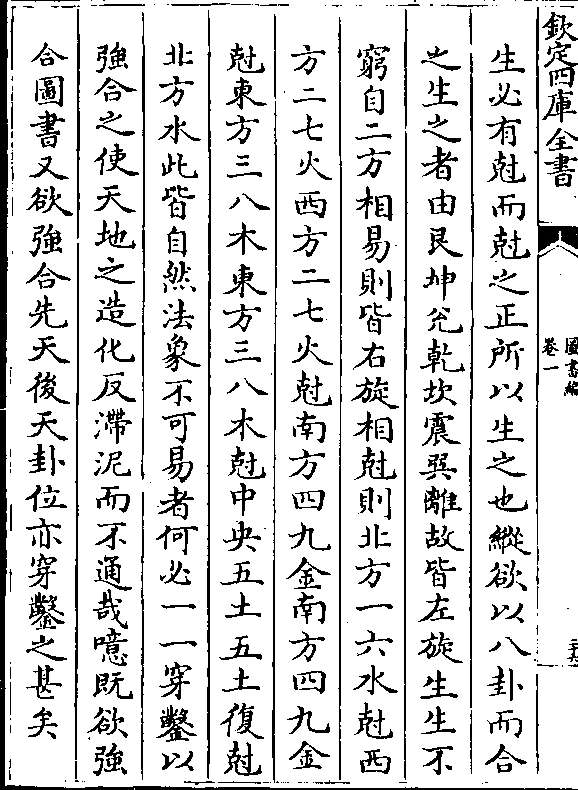 欽定四庫全書
圖書編
卷一
生必有尅而尅之正所以生之也縱欲以八卦而合
之生之者由艮坤兊乾坎震巽離故皆左旋生生不
窮自二方相易則皆右旋相尅則北方一六水尅西
方二七火西方二七火尅南方四九金南方四九金
尅東方三八木東方三八木尅中央五土五土復尅
北方水此皆自然法象不可易者何必一一穿鑿以
強合之使天地之造化反滯泥而不通哉噫既欲強
合圖書又欲強合先天後天卦位亦穿鑿之甚矣